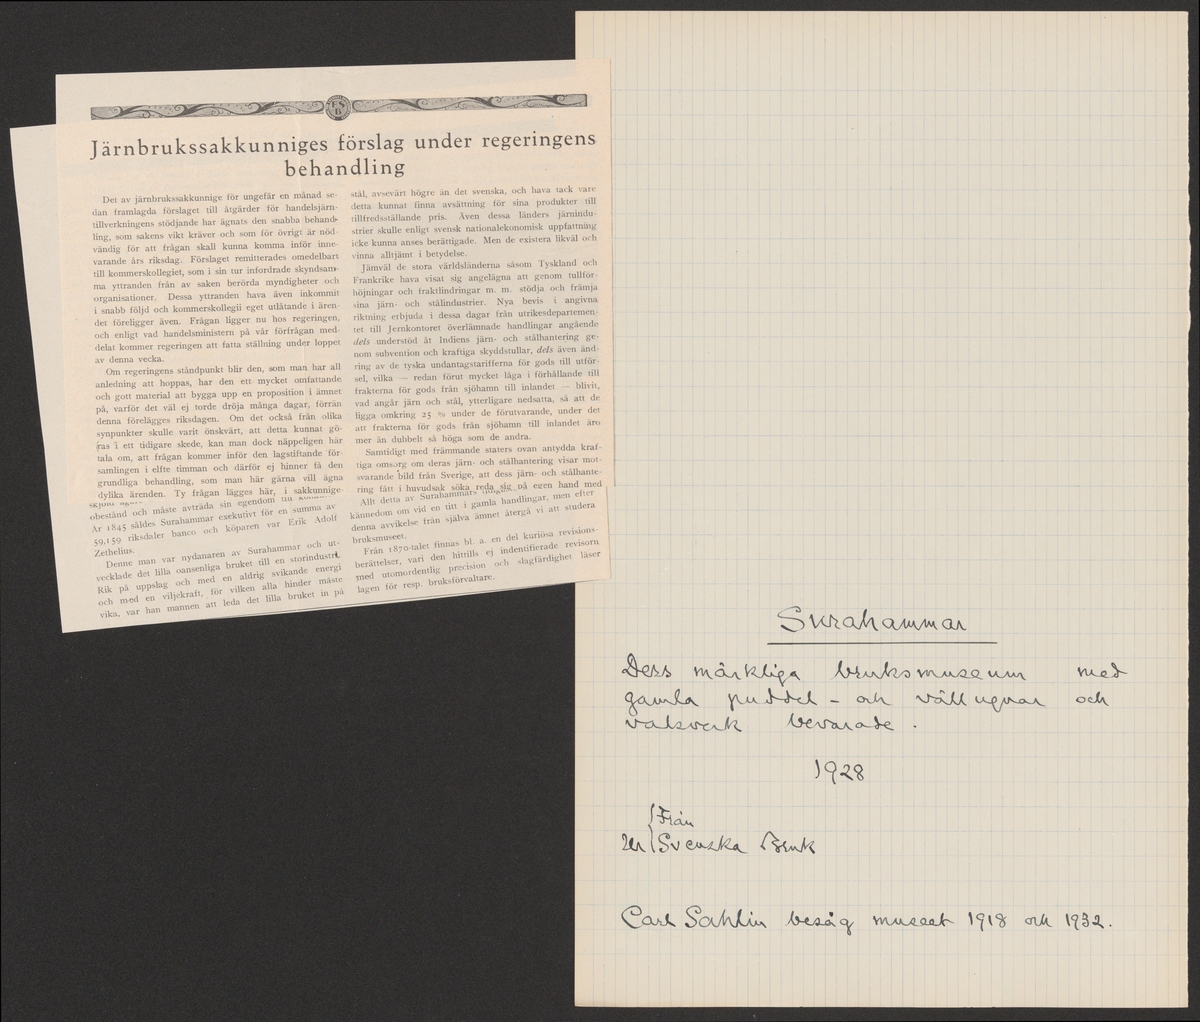 FSB
Järnbrukssakkunniges förslag under regeringens
behandling
Det av järnbrukssakkunnige för ungefär en månad se-
dan framlagda förslaget till åtgärder för handelsjärn-
tillverkningens stödjande har ägnats den snabba behand-
ling, som sakens vikt kräver och som för övrigt är nöd-
vändig för att frågan skall kunna komma inför inne-
varande års riksdag. Förslaget remitterades omedelbart
till kommerskollegiet, som i sin tur infordrade skyndsam-
ma yttranden från av saken berörda myndigheter och
organisationer. Dessa yttranden hava även inkommit
i snabb följd och kommerskollegii eget utlåtande i ären-
det föreligger även. Frågan ligger nu hos regeringen,
och enligt vad handelsministern på vår förfrågan med-
delat kommer regeringen att fatta ställning under loppet
av denna vecka.
Om regeringens ståndpunkt blir den, som man har all
anledning att hoppas, har den ett mycket omfattande
och gott material att bygga upp en proposition i ämnet
på, varför det väl ej torde dröja många dagar, förrän
denna förelägges riksdagen. Om det också från olika
synpunkter skulle varit önskvärt, att detta kunnat gö-
ras i ett tidigare skede, kan man dock näppeligen här
tala om, att frågan kommer inför den lagstiftande för-
samlingen i elfte timman och därför ej hinner få den
grundliga behandling, som man här gärna vill ägna
dylika ärenden. Ty frågan lägges här, i sakkunnige-
obestånd och måste avträda sin egendom
År 1845 såldes Surahammar exekutivt för en summa av
59,159 riksdaler banco och köparen var Erik Adolf
Zethelius.
Denne man var nydanaren av Surahammar och ut-
vecklade det lilla oansenliga bruket till en storindustri.
Rik på uppslag och med en aldrig svikande energi
och med en viljekraft, för vilken alla hinder måste
vika, var han mannen att leda det lilla bruket in på
stål, avsevärt högre än det svenska, och hava tack vare
detta kunnat finna avsättning för sina produkter till
tillfredsställande pris. Även dessa länders järnindu-
strier skulle enligt svensk nationalekonomisk uppfattning
icke kunna anses berättigade. Men de existera likväl och
vinna alltjämt i betydelse.
Jämväl de stora världsländerna såsom Tyskland och
Frankrike hava visat sig angelägna att genom tullför-
höjningar och fraktlindringar m. m. stödja och främja
sina järn- och stålindustrier. Nya bevis i angivna
riktning erbjuda i dessa dagar från utrikesdepartemen-
tet till Jernkontoret överlämnade handlingar angående
dels understöd åt Indiens järn- och stålhantering ge-
nom subvention och kraftiga skyddstullar, dels även änd-
ring av de tyska undantagstarifferna för gods till utför-
sel, vilka — redan förut mycket låga i förhållande till
frakterna för gods från sjöhamn till inlandet — blivit,
vad angår järn och stål, ytterligare nedsatta, så att de
ligga omkring 25 % under de förutvarande, under det
att frakterna för gods från sjöhamn till inlandet äro
mer än dubbelt så höga som de andra.
Samtidigt med främmande staters ovan antydda kraf-
tiga omsorg om deras järn- och stålhantering visar mot-
svarande bild från Sverige, att dess järn- och stålhante-
ring fått i huvudsak söka reda sig på egen hand med
Allt detta av Surahammars
kännedom om vid en titt i gamla handlingar, men efter
denna avvikelse från själva ämnet återgå vi att studera
bruksmuseet.
Från 1870-talet finnas bl. a. en del kuriösa revisions-
berättelser, vari den hittills ej indentifierade revisorn
med utomordentlig precision och slagfärdighet läser
lagen för resp. bruksförvaltare.
Surahammar
Dess märkliga bruksmuseum med
gamla puddel- och vällugnar och
valsverk bevarade.
1928
Från
Ur Svenska Bruk
Carl Sahlin besåg museet 1918 och 1932.